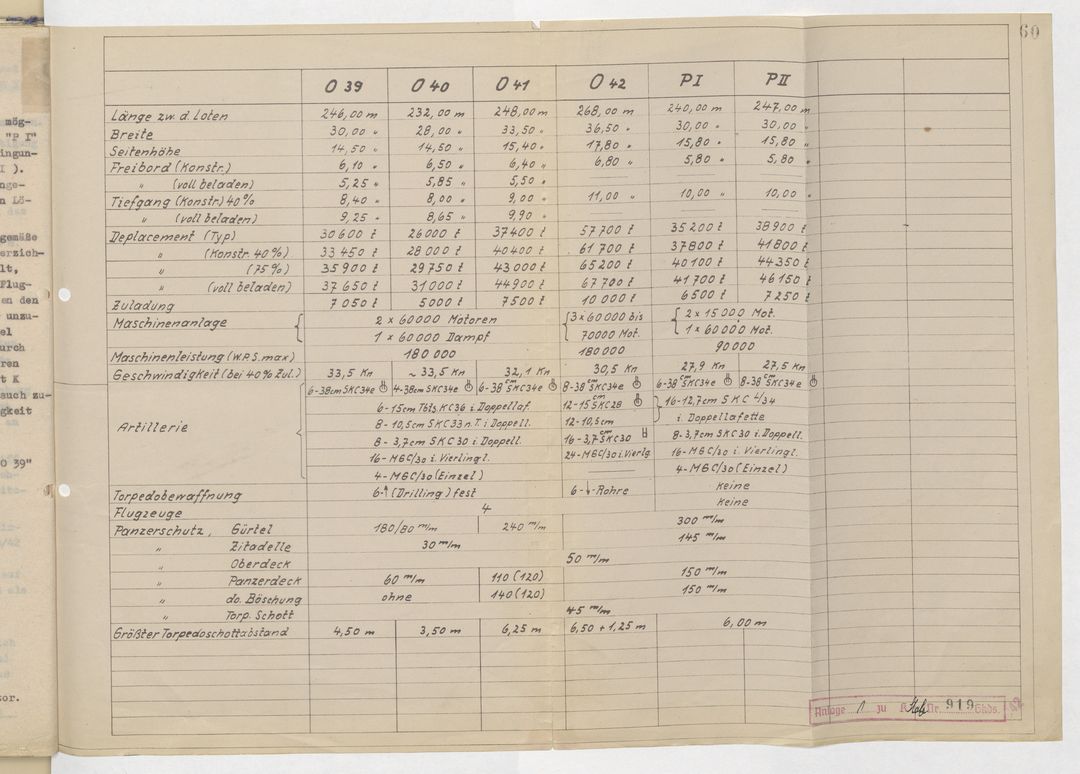 60
mög-
"P I"
ingun-
I ).
nge-
n Lö-
gemäße
erzich-
lt,
Flug-
en den
unzu-
el
urch
ren
t K
auch zu-
gkeit
O 39"
tor.
O 39 O 40 O 41 O 42 P I P II
Länge zw. d. Loten 246,00 m 232,00 m 248,00 m 268,00 m 240,00 m 247,00 m
Breite 30,00 " 28,00 " 33,50 " 36,50 " 30,00 " 30,00 "
Seitenhöhe 14,50 " 14,50 " 15,40 " 17,80 " 15,80 " 15,80 "
Freibord (Konstr.) 6,10 " 6,50 " 6,40 " 6,80 " 5,80 " 5,80 "
" (voll beladen) 5,25 " 5,85 " 5,50 "
Tiefgang (Konstr.) 40% 8,40 " 8,00 " 9,00 " 11,00 " 10,00 " 10,00 "
" (voll beladen) 9,25 " 8,65 " 9,90 "
Deplacement (Typ) 30600 t 26000 t 37400 t 57700 t 35200 t 38900 t
" (Konstr. 40%) 33450 t 28000 t 40400 t 61700 t 37800 t 41800 t
" (75%) 35900 t 29750 t 43000 t 65200 t 40100 t 44350 t
" (voll beladen) 37650 t 31000 t 44900 t 67700 t 41700 t 46150 t
Zuladung 7050 t 5000 t 7500 t 10000 t 6500 t 7250 t
Maschinenanlage { 2 x 60000 Motoren { 3 x 60000 bis { 2 x 15000 Mot.
1 x 60000 Dampf 70000 Mot. 1 x 60000 Mot.
Maschinenleistung (W.P.S. max) 180000 180000 90000
Geschwindigkeit (bei 40% Zul.) 33,5 Kn ~ 33,5 Kn 32,1 Kn 30,5 Kn 27,9 Kn 27,5 Kn
Artillerie { 6-38cm SKC34e 4-38cm SKC34e 6-38cm SKC34e 8-38cm SKC34e 6-38cm SKC34e 8-38cm SKC34e
6-15cm Tbts KC36 i. Doppellaf. 12-15cm SKC28 } 16-12,7cm SKC 4/34
8-10,5cm SKC33 n.T. i Doppell. 12-10,5cm i. Doppellafette
8-3,7cm SKC30 i. Doppell. 16-3,7cm SKC30 8-3,7cm SKC30 i. Doppell.
16-MGC/30 i. Vierlingl. 24-MGC/30 i. Vierlg 16-MGC/30 i. Vierlingl.
4-MGC/30 (Einzel) 4-MGC/30 (Einzel)
Torpedobewaffnung 6- (Drilling) fest 6- Rohre keine
Flugzeuge 4 keine
Panzerschutz, Gürtel 180/80 m/m 240 m/m 300 m/m
" Zitadelle 30 m/m 145 m/m
" Oberdeck 50 m/m
" Panzerdeck 60 m/m 110 (120) 150 m/m
" do. Böschung ohne 140 (120) 150 m/m
" Torp. Schott 45 m/m
Größter Torpedoschottabstand 4,50 m 3,50 m 6,25 m 6,50 + 1,25 m 6,00 m
Anlage 1 zu K Nr. 919 Gkds.